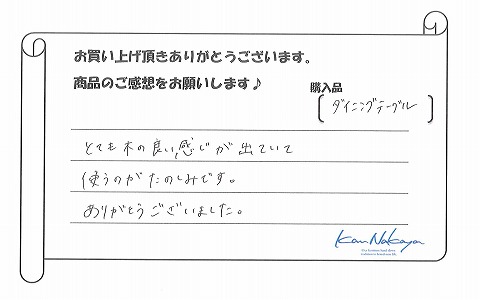 お買い上げ頂きありがとうございます。
商品のご感想をお願いします♪
購入品
ダイニングテーブル
とても木の良い感じが出ていて
使うのがたのしみです。
ありがとうございました。
KanNakaya